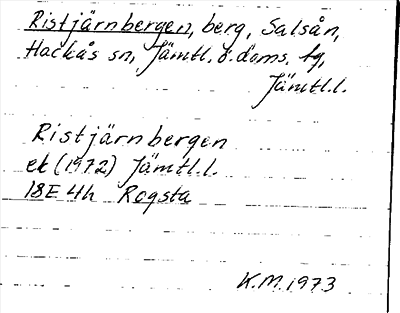 Ristjärnbergen, berg, Salsån,
Hackås sn, Jämtl. ö. doms. tg,
Jämtl.l.
Ristjärnbergen
ek (1972) Jämtl.l.
18E 4h Rogsta
K.M. 1973